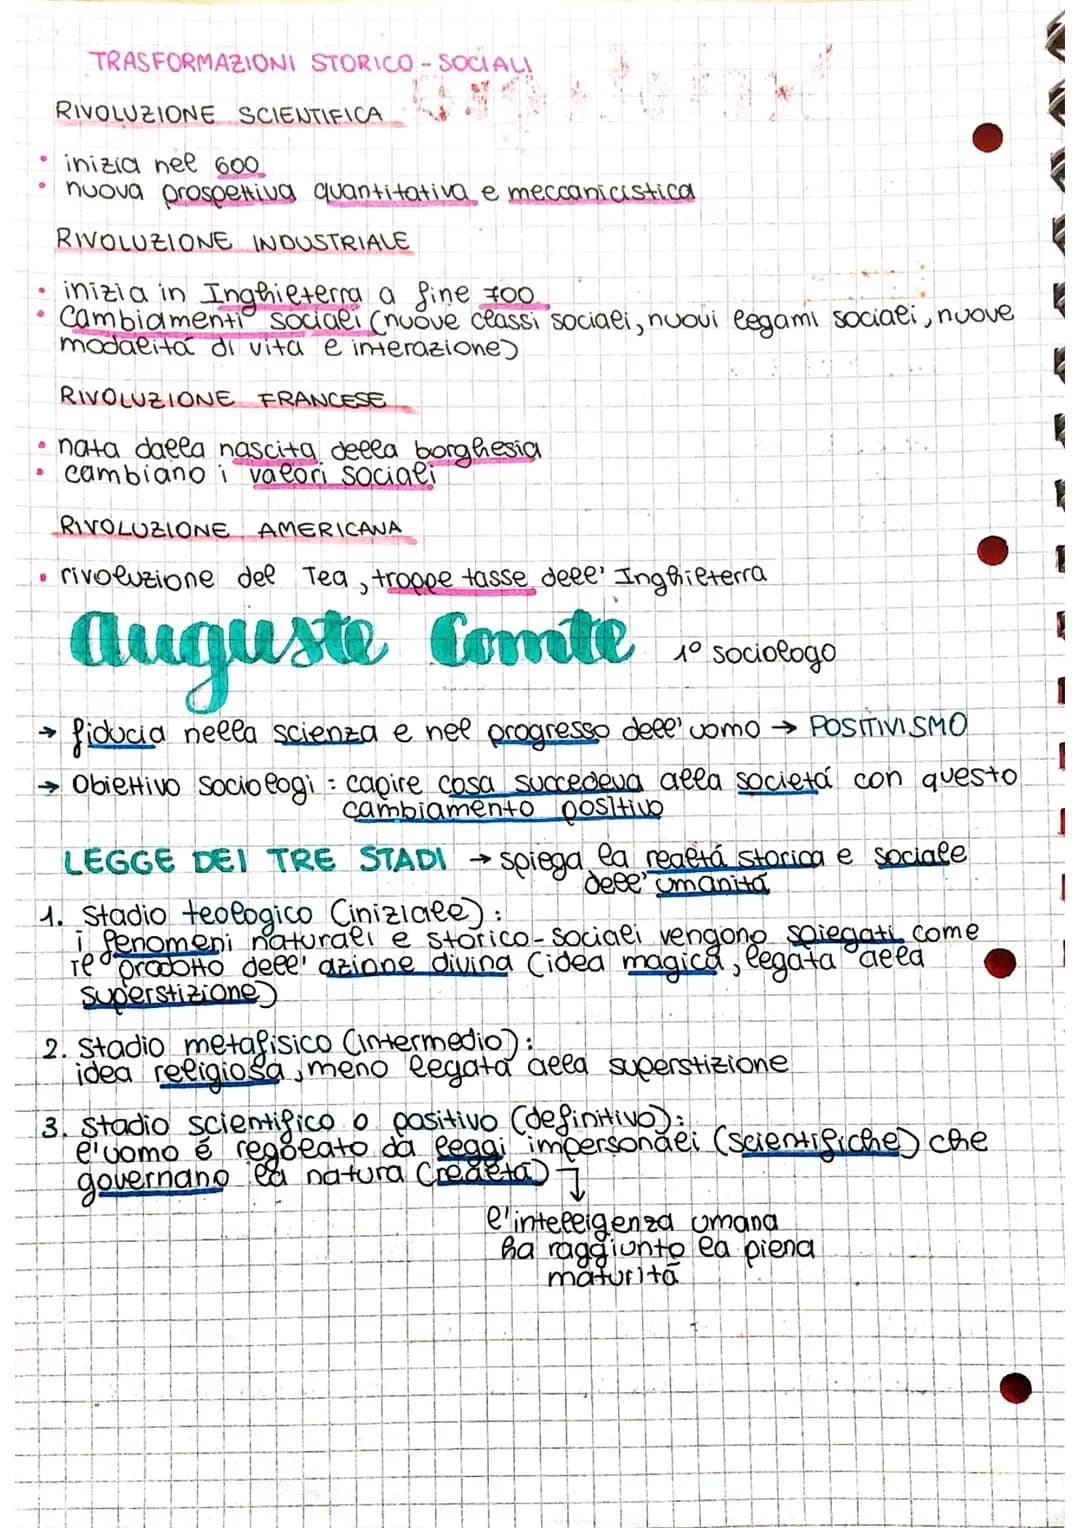 TRASFORMAZIONI STORICO - SOCIALI
RIVOLUZIONE SCIENTIFICA
• inizia nel 600
• nuova prospettiva quantitativa e meccanicistica
RIVOLUZIONE INDUSTRIALE
• inizia in Inghilterra a fine 700
• Cambiamenti sociali (nuove classi sociali, nuovi legami sociali, nuove
modalitá di vita e interazione)
RIVOLUZIONE FRANCESE
• nata dalla nascita della borghesia
• cambiano i valori sociali
RIVOLUZIONE AMERICANA
• rivoluzione del Tea, troppe tasse dell' Inghilterra
Auguste Comte 1° sociologo
→ fiducia nella scienza e nel progresso dell' uomo → POSITIVISMO
→ Obiettivo Sociologi : capire cosa succedeva alla societá con questo
cambiamento positivo
LEGGE DEI TRE STADI → spiega la realtá storica e sociale
dell' umanitá
1. Stadio teologico (iniziale) :
i fenomeni naturali e storico-sociali vengono spiegati come
il prodotto dell' azione divina (idea magica, legata alla
superstizione)
2. Stadio metafisico (intermedio) :
idea religiosa, meno legata alla superstizione
3. Stadio scientifico o positivo (definitivo) :
l'uomo é regolato da leggi impersonali (scientifiche) che
governano la natura (realtá) ↓
l'intelligenza umana
ha raggiunto la piena
maturitá